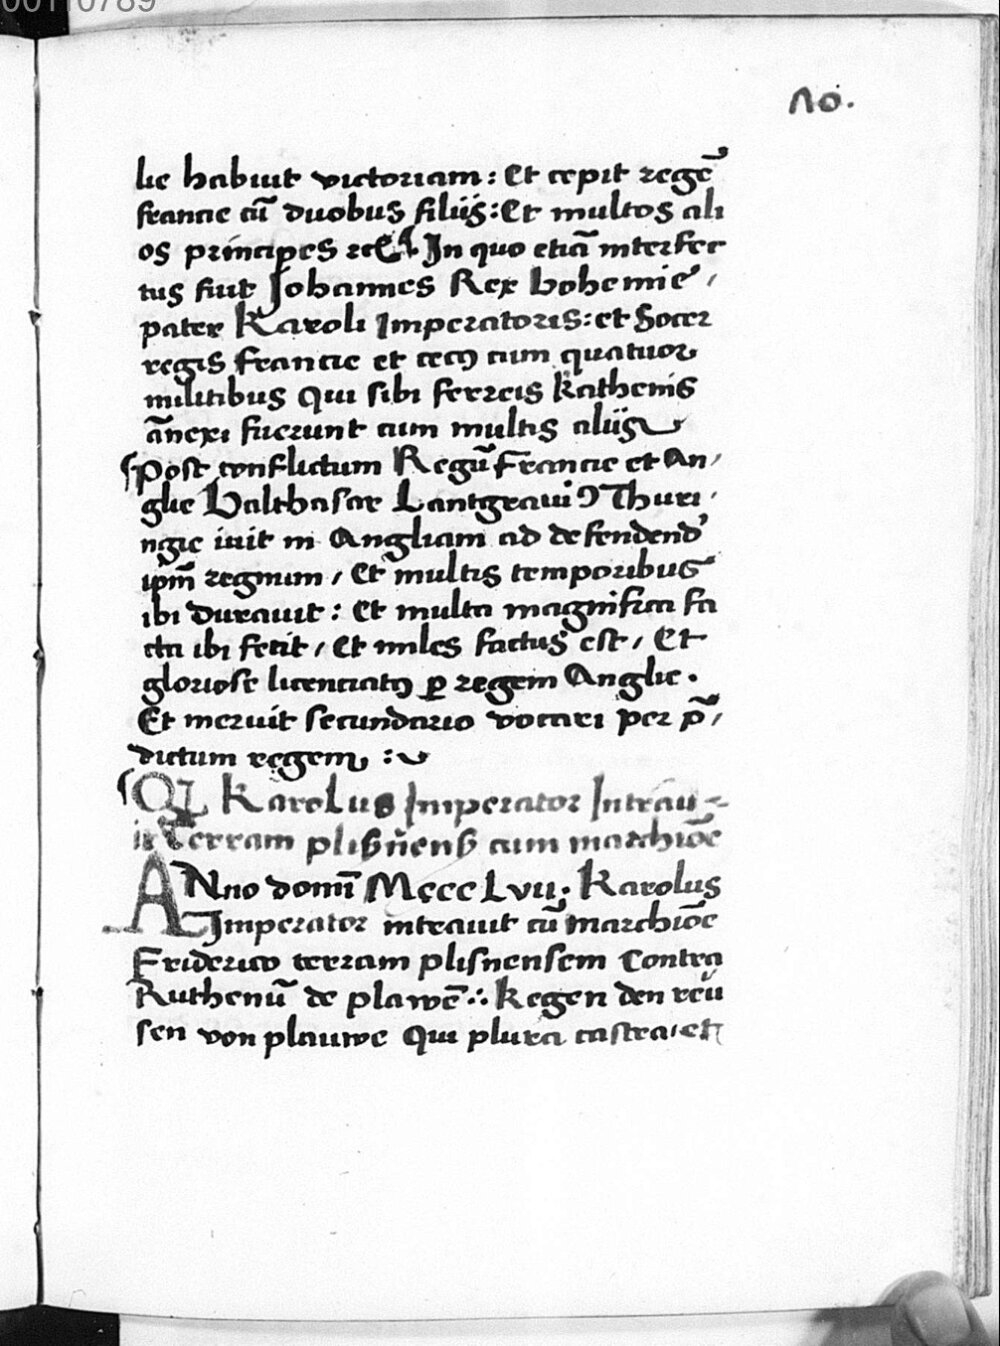 00110789
10.
lie habuit victoriam : Et cepit regē
francie cū duobus filiis : Et multos ali
os principes In quo etiā interfec
tus fuit Johannes Rex bohemie ,
pater Karoli Imperatoris : et Socer
regis francie et cecꝰ cum quatuor
militibus Qui sibi ferreis kathenis
ānexi fuerunt cum multis aliis
Post conflictum Regū Francie et An,
glie Balthasar Lantgrauiꝰ Thuri,
ngie iuit in Angliam ad defendend
ipm̄ regnum , Et multis temporibus
ibi durauit : Et multa magnifica fa
cta ibi fecit , Et miles factus est , Et
gloriose licenciatꝰ ꝑ regem Anglie .
Et meruit secundario vocari per p̄,
dictum regem :
Karolus Imperator Intrau-
it Terram plisñens cum marchiōe
ANno domī Mccc Lvii. Karolus
Imperator intrauit cū marchiōe
Friderico terram plisnensem Contra
Ruthenū de plawē ∴ kegen den reŭ
sen von plauwe Qui plura castra, et